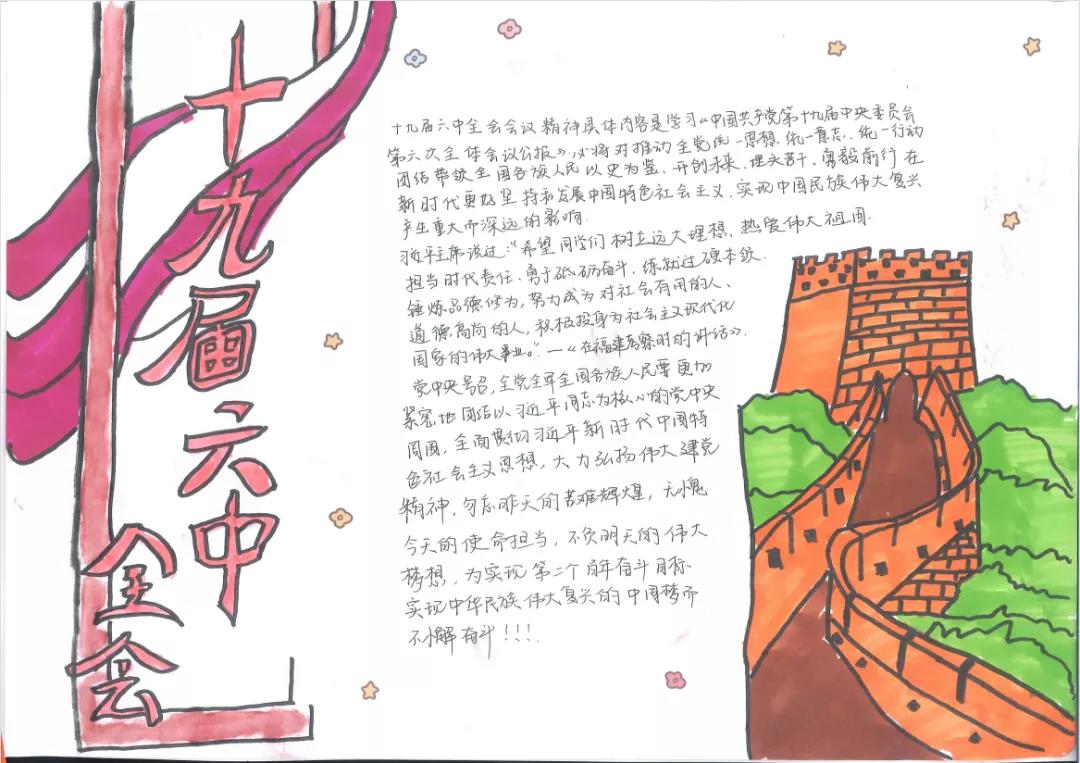 十九届六中
全会
十九届六中全会会议精神具体内容是学习《中国共产党第十九届中央委员会
第六次全体会议公报》,必将对推动全党统一思想、统一意志、统一行动
团结带领全国各族人民以史为鉴、开创未来、埋头苦干、勇毅前行在
新时代更好坚持和发展中国特色社会主义、实现中国民族伟大复兴
产生重大而深远的影响.
习近平主席说过:“希望同学们树立远大理想、热爱伟大祖国.
担当时代责任、勇于砥砺奋斗,练就过硬本领.
锤炼品德修为,努力成为对社会有用的人、
道德高尚的人,积极投身为社会主义现代化
国家的伟大事业。”—《在福建考察时的讲话》.
党中央号召,全党全军全国各族人民要更加
紧密地团结以习近平同志为核心的党中央
周围,全面贯彻习近平新时代中国特
色社会主义思想,大力弘扬伟大建党
精神,勿忘昨天的苦难辉煌,无愧
今天的使命担当,不负明天的伟大
梦想,为实现第二个百年奋斗目标.
实现中华民族伟大复兴的中国梦而
不懈奋斗!!!.